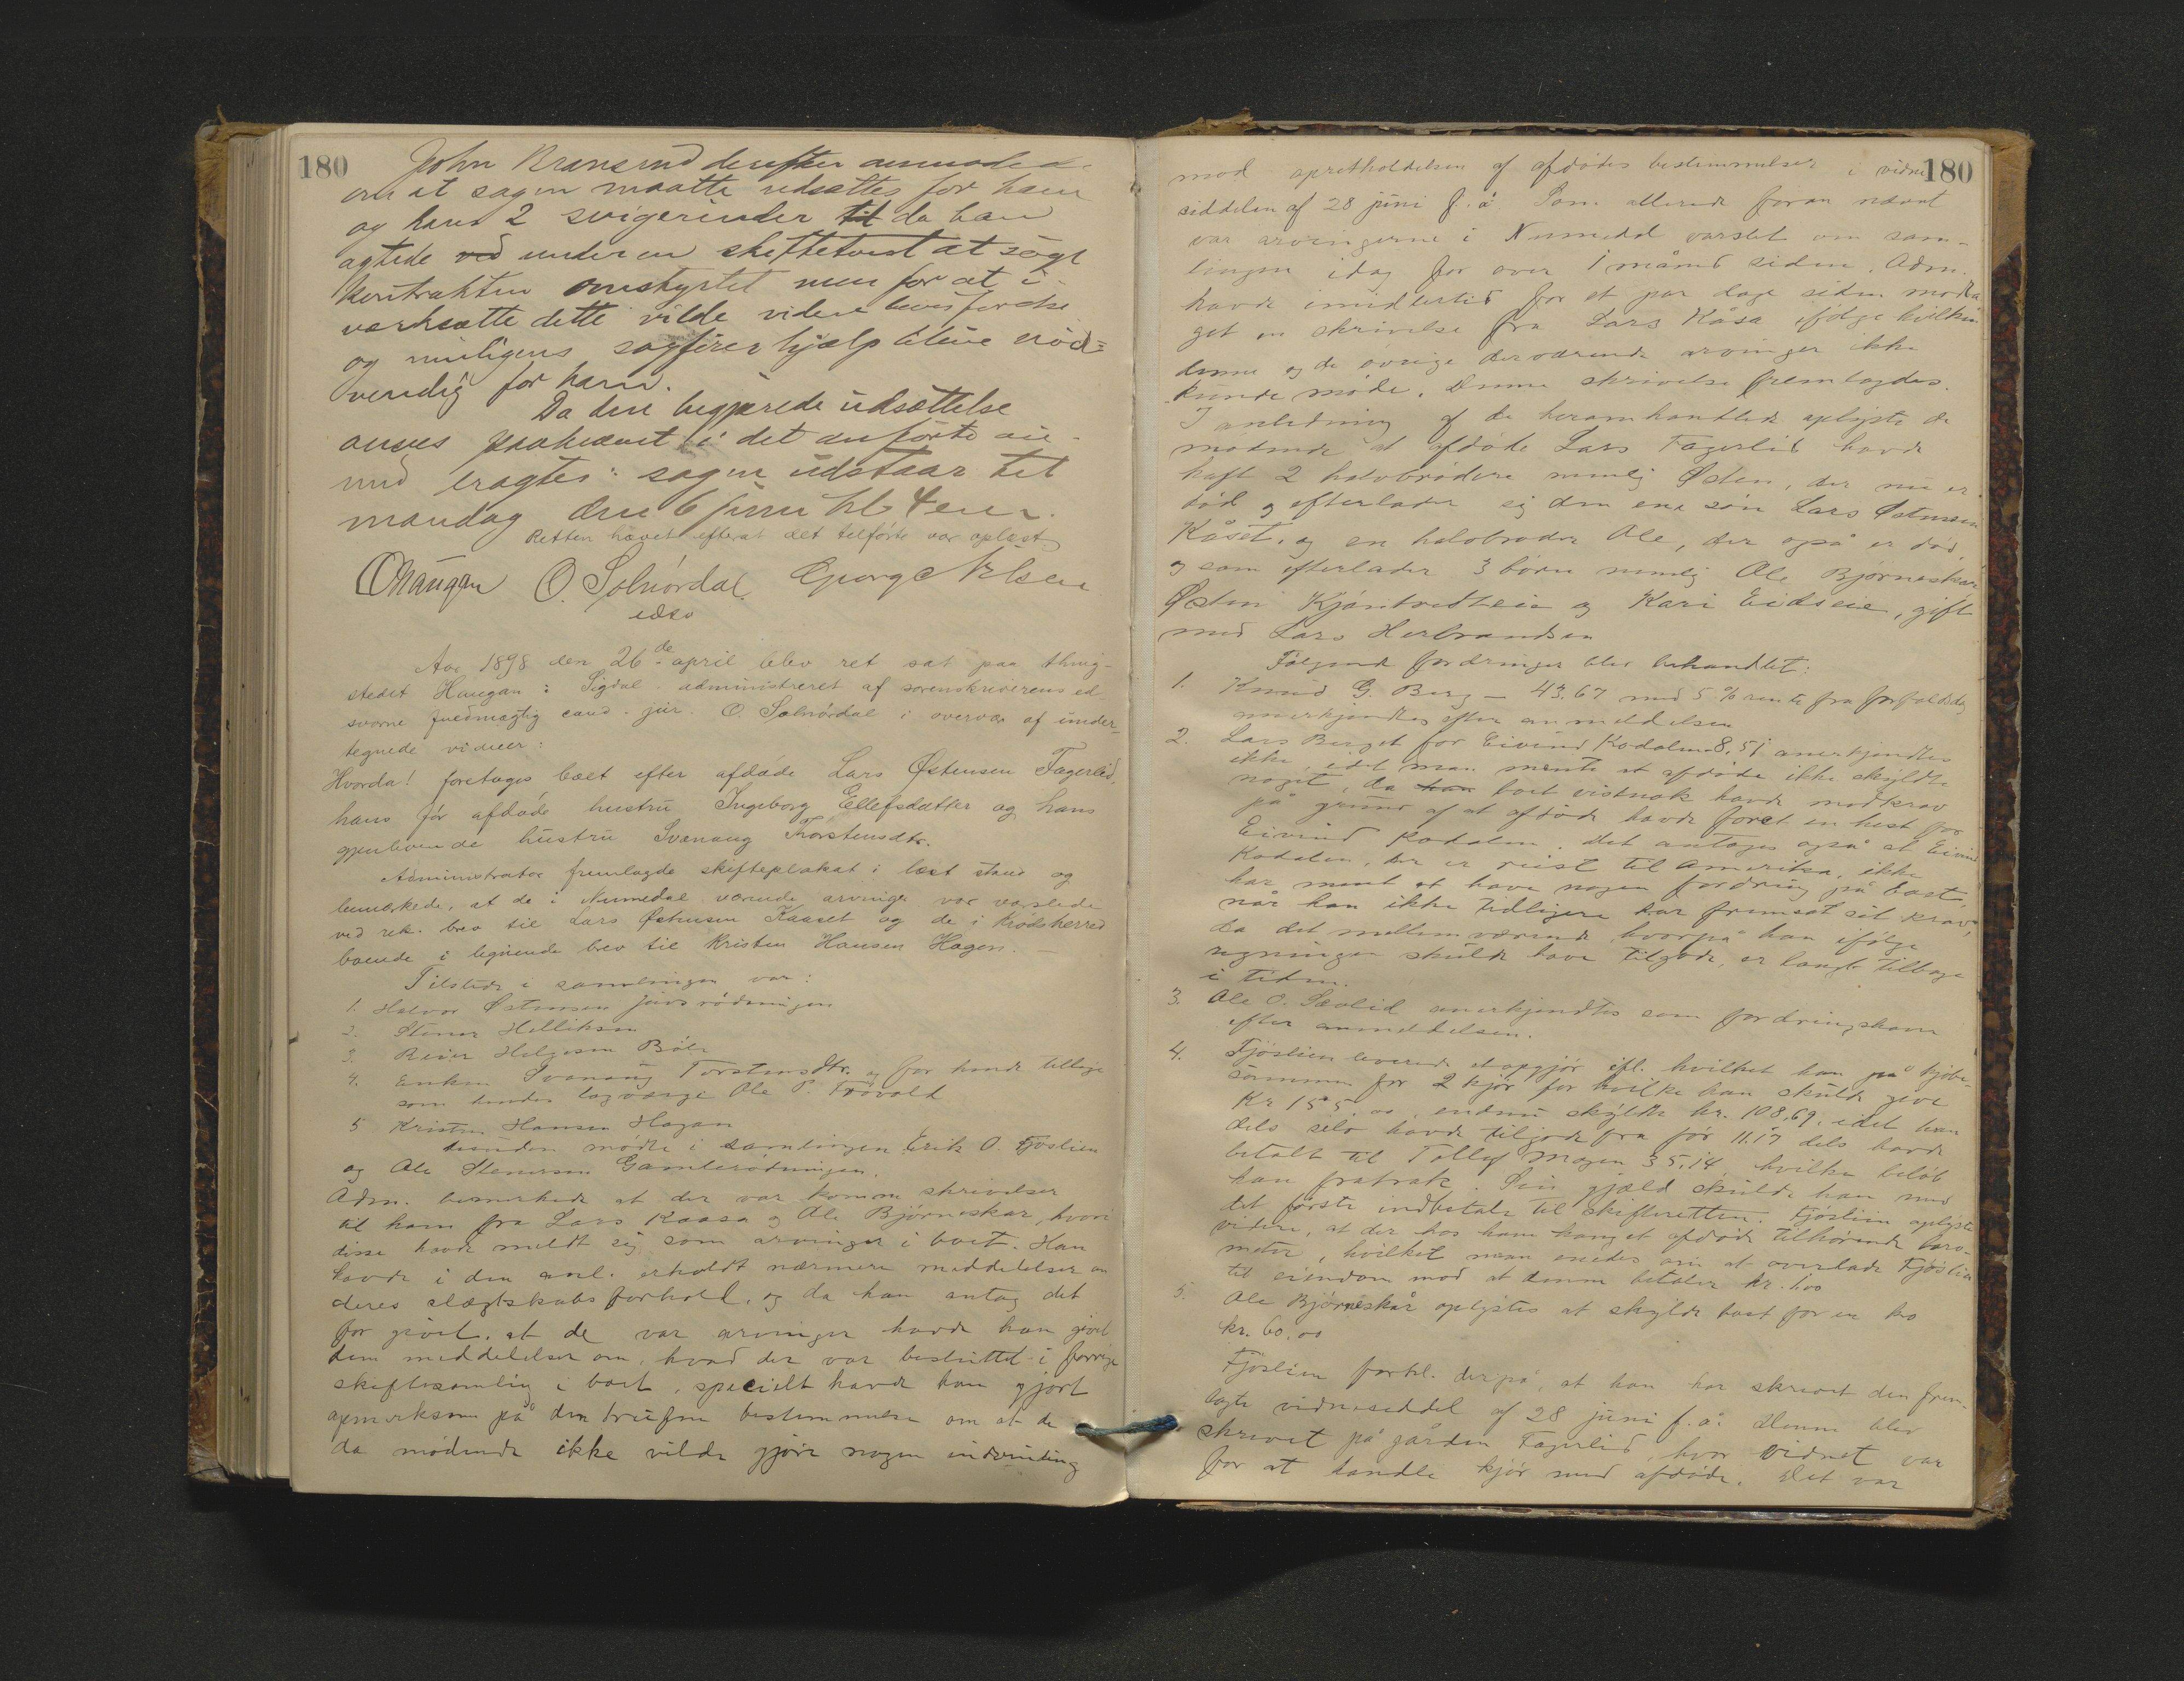 180
John Kransrud derefter anmodede
om at sagen maatte udsættes for ham
og hans 2 svigerinder til da han
agtede ved under en skiftetvist at søge
kontrakten omstyrtet men for at i-
værksætte dette vilde videre bevisførelse
og muligens sagførerhjælp blive nød-
vendig for ham.
Da den begjærede udsættelse
ansees paakrævet i det anførte øie-
med eragtes: sagen udstaar til
mandag den 6 juni kl 4 em.
Retten hævet efterat det tilførte var oplæst
OHaugan O. Solnørdal George Nilsen
edsv
Aar 1898 den 26de april blev ret sat paa thing-
stedet Haugan i Sigdal administreret af sorenskriverens ed
svorne fuldmægtig cand. jur. O. Solnørdal i overvær af under-
tegnede vidner:
Hvorda! foretoges boet efter afdøde Lars Østensen Fagerlid,
hans før afdøde hustru Ingeborg Ellefsdatter og hans
gjenlevende hustru Svanaug Thorstensdtr.
Administrator fremlagde skifteplakat i læst stand og
bemærkede, at de i Numedal værende arvinger var varslede
ved rek. brev til Lars Østensen Kaaset og de i Krødsherred
boende i lignende brev til Kristen Hansen Hagen. —
Tilstede i samlingen var:
1. Halvor Østensen Juvsrødningen
2. Stener Helliksen
3. Reier Helgesen Böle
4. Enken Svanaug Torstensdtr. og for hende tillige
som hendes lagværge Ole P. Frövold
5 Kristen Hansen Hagan
desuden mødte i samlingen Erik O. Fjøslien
og Ole Stenersen Gamlerödningen.
Adm. bemerkede at der var komne skrivelser
til ham fra Lars Kaasa og Ole Björneskar, hvori
disse havde meldt sig som arvinger i boet. Han
havde i den anl. erholdt nærmere meddelelser om
deres slægtskabsforhold, og da han antog det
for givet, at de var arvinger havde han givet
dem meddelelser om, hvad der var besluttet i forrige
skiftesamling i boet, specielt havde han gjort
opmerksom på den trufne bestemmelse om at de
da mødende ikke vilde gjøre nogen indvending
180
mod opretholdelsen af afdødes bestemmelser i vidne
siddelen af 28 juni f. å. Som allerede foran nævnt
var arvingerne i Numedal varslet om sam-
lingen idag for over 1 måned siden. Adm.
havde imidlertid for et par dage siden modta
get en skrivelse fra Lars Kåsa ifølge hvilken
denne og de øvrige derværende arvinger ikke
kunde møde. Denne skrivelse fremlagdes.
I anledning af de heromhandlede oplyste de
mødende at afdøde Lars Fagerlid havde
haft 2 halvbrødere nemlig Østen, der nu er
död og efterlader sig den ene søn Lars Østensen
Kåset, og en halvbroder Ole, der også er død,
og som efterlader 3 børn nemlig Ole Bjørneskar
Østen Kjöntvedteie og Kari Eidseie, gift
med Lars Herbrandsen
Følgende fordringer blev behandlet:
1. Knud G. Berg – 43.67 med 5 % rente fra forfaldsdag
anerkjendtes efter anmeldelsen
2. Lars Berget for Eivind Kodalen 8,51 anerkjendtes
ikke, idet man mente at afdøde ikke skyldte
noget, da han boet vistnok havde modkrav
på grund af at afdøde havde foret en hest for
Eivind Kodalen. Det antages også at Eivind
Kodalen, der er reist til Amerika, ikke
har ment at have nogen fordring på boet,
når han ikke tidligere har fremsat sit krav,
da det mellemværende, hvorpå han ifølge
regningen skulde have tilgode, er langt tilbage
i tiden.
3. Ole O. Sævlid anerkjendtes som fordringshaver
efter anmeldelsen.
4. Fjøslien leverede et opgjør ifl. hvilket han på kjøbe-
summen for 2 kjør for hvilke han skulde give
Kr 155,00, endnu skyldte kr. 108,69, idet han
dels selv havde tilgode fra før 11.17 dels havde
betalt til Tollef Mogen 35,14, hvilke beløb
han fratrak. Sin gjæld skulde han med
det første indbetale til skifteretten. Fjøslien oplyste
videre, at der hos ham hang et afdøde tilhørende baro-
meter, hvilket man enedes om at overlade Fjøslien
til eiendom mod at denne betaler kr. 1.00
5. Ole Bjørneskår oplystes at skylde boet for en ko
kr. 60.00
Fjøslien forkl. derpå, at han har skrevet den frem-
lagte vidneseddel af 28 juni f. å. Denne blev
skrevet på gården Fagerlid, hvor vidnet var
for at handle kjør med afdøde. Det var